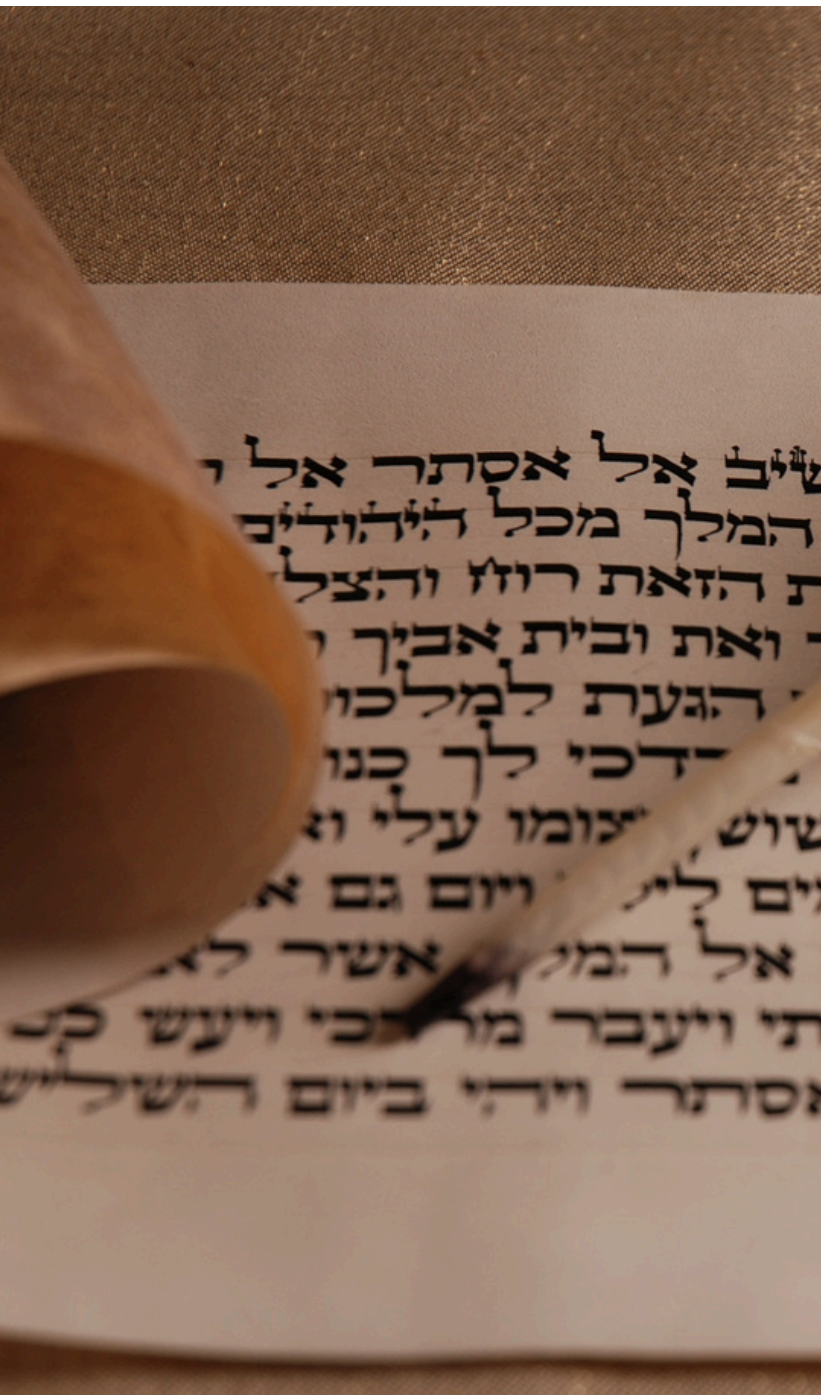 שיב אל אסתר אל
המלך מכל היהודים
ת הזאת רוח והצל
ואת ובית אביך
הגעת למלכו
רדכי לך כנו
שוש צומו עלי וא
ים ליל ויום גם א
אל המלך אשר לא
תי ויעבר מרדכי ויעש
אסתר ויהי ביום השליש